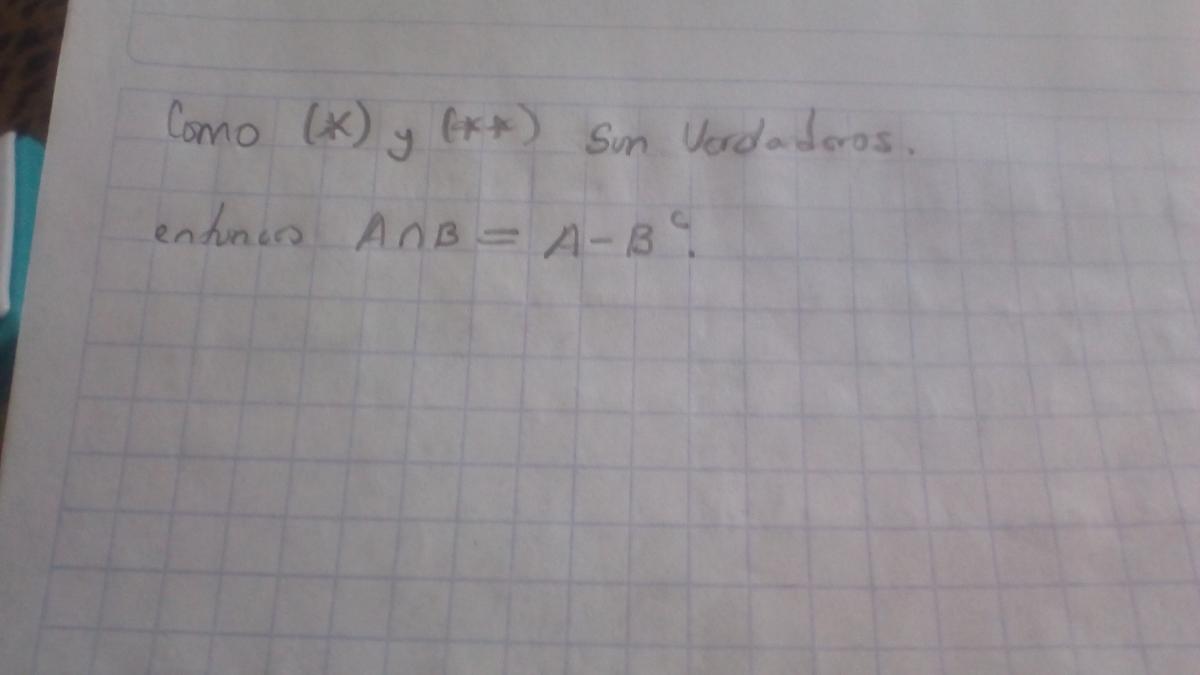 Como (*) y (**) son Verdaderos.
entonces A∩B = A - Bᶜ.